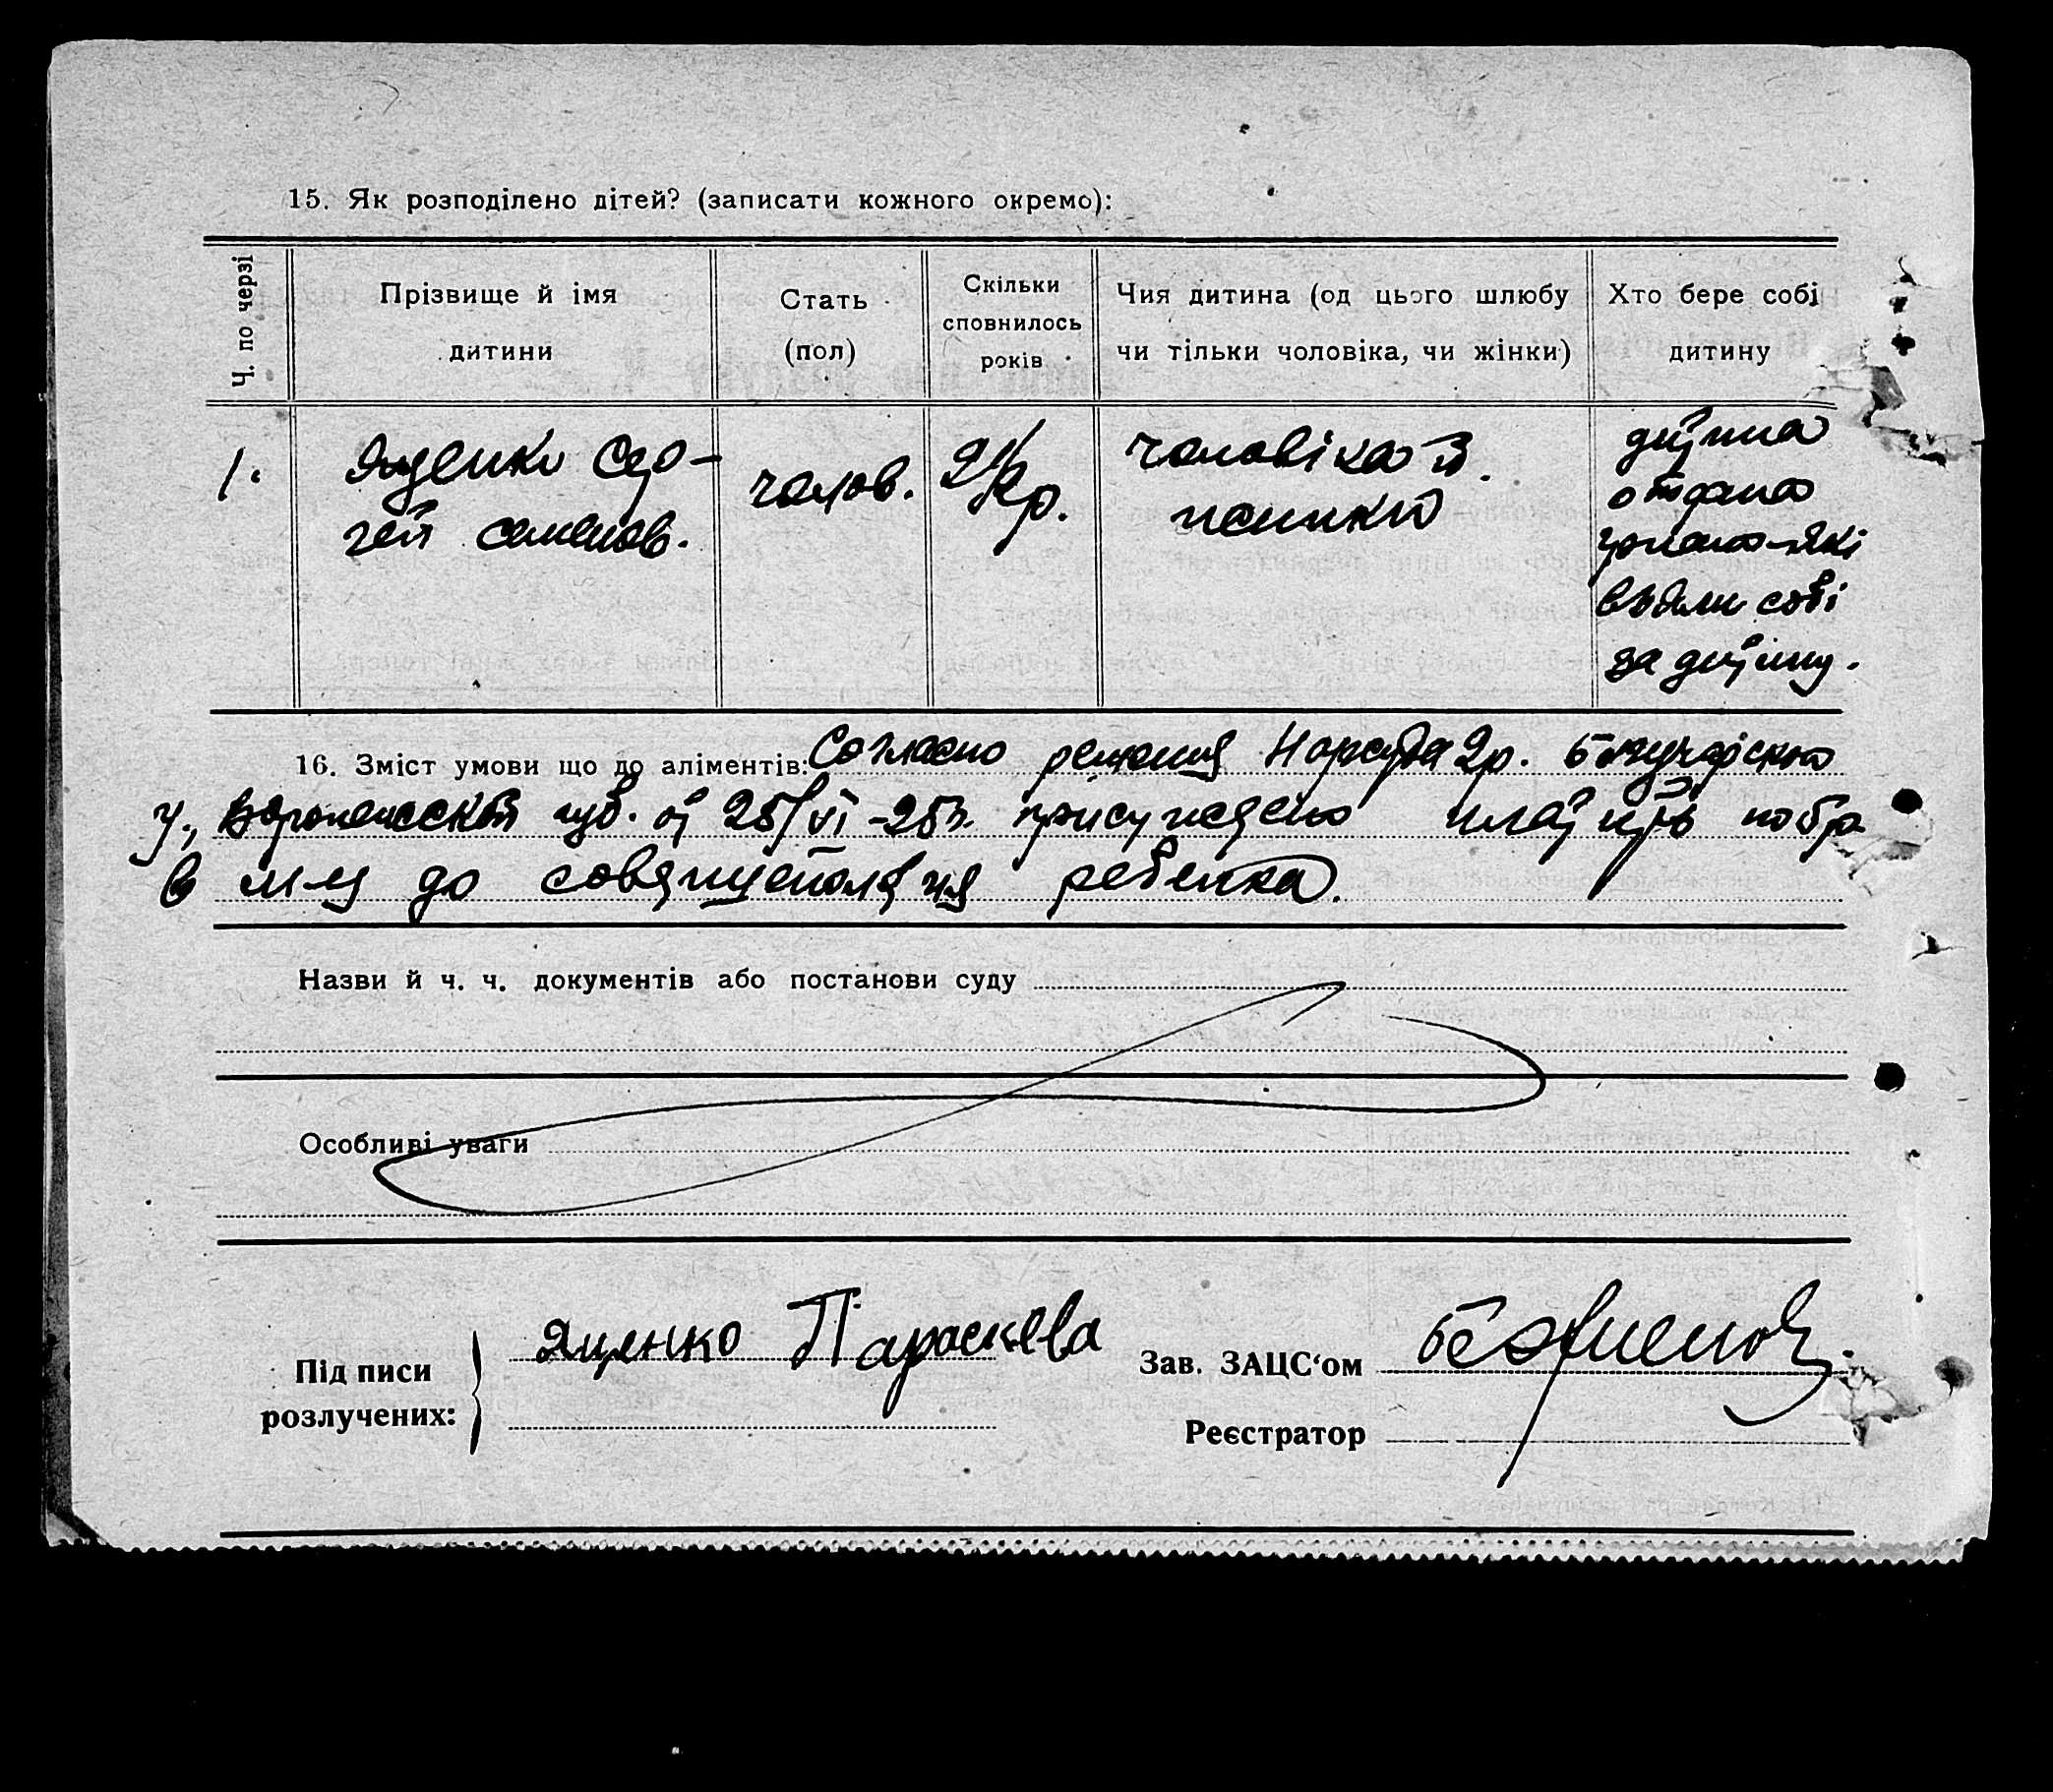 15. Як розподілено дітей? (записати кожного окремо):
Ч. по черзі
Прізвище й імя
дитини
Стать
(пол)
Скільки
сповнилось
років
Чия дитина (од цього шлюбу
чи тільки чоловіка, чи жінки)
Хто бере собі
дитину
1.
Яценко Сер-
гей Семенов.
чолов.
2 1/2 р.
чоловіка й
жінки
дитина
отдана
які
взяли собі
за дитину.
16. Зміст умови що до аліментів: Согласно решения Нарсуда 2р. Богучарского
у., Воронежской губ. от 25/VI-25г. присуждено платить по 6р
в м-ц до совершенолетия ребенка.
Назви й ч. ч. документів або постанови суду
Особливі уваги
Під писи
розлучених:
Яценко Параскева
Зав. ЗАЦС‘ом
Реєстратор